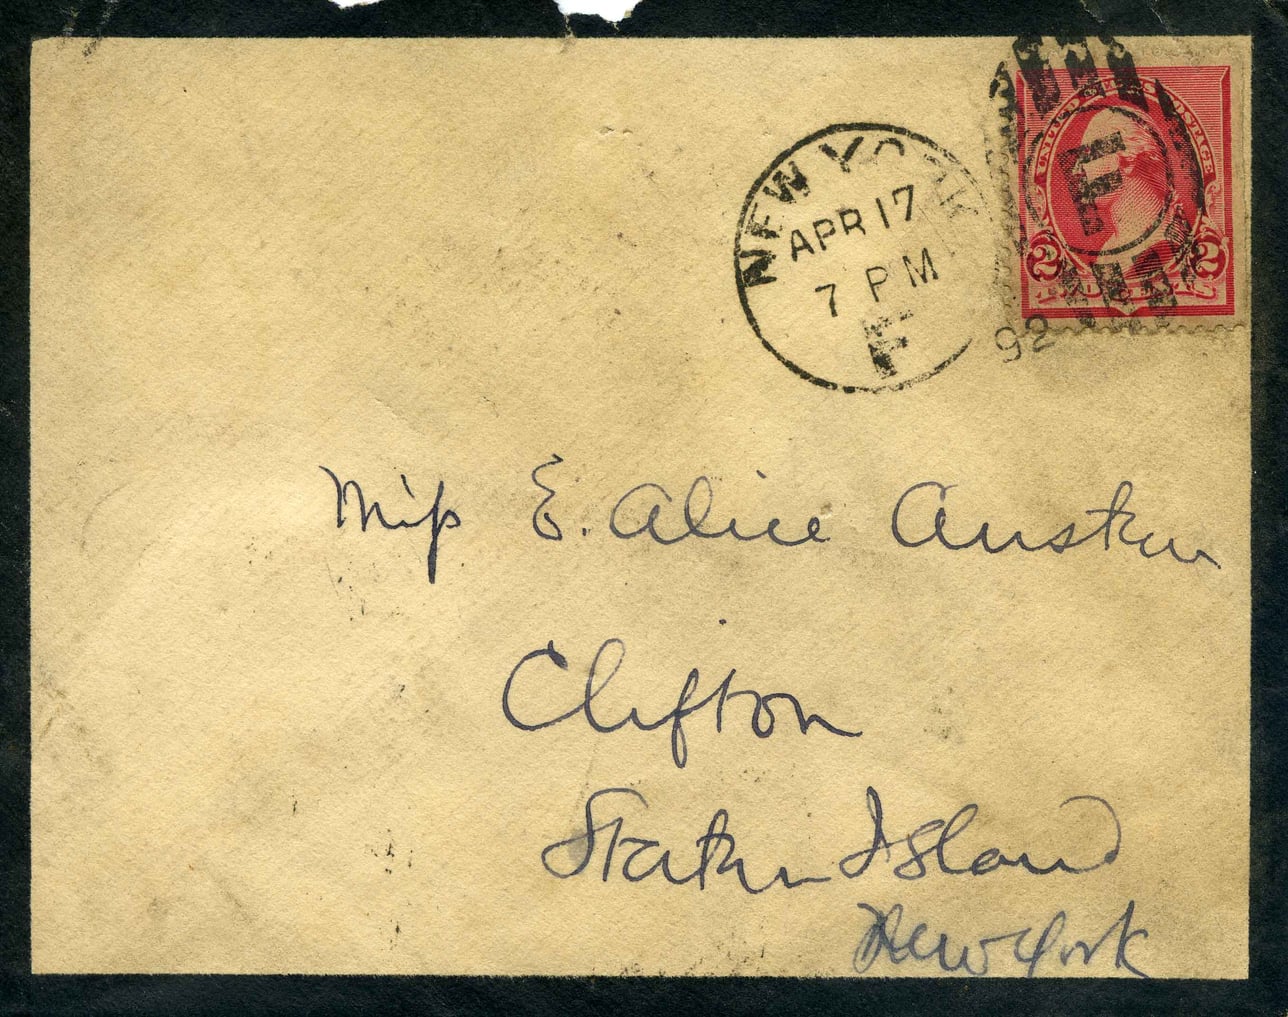 NEW YORK
APR 17
7 PM
F
92
UNITED STATES POSTAGE
F
2 2
Miss E. Alice Austen
Clifton
Staten Island
New York